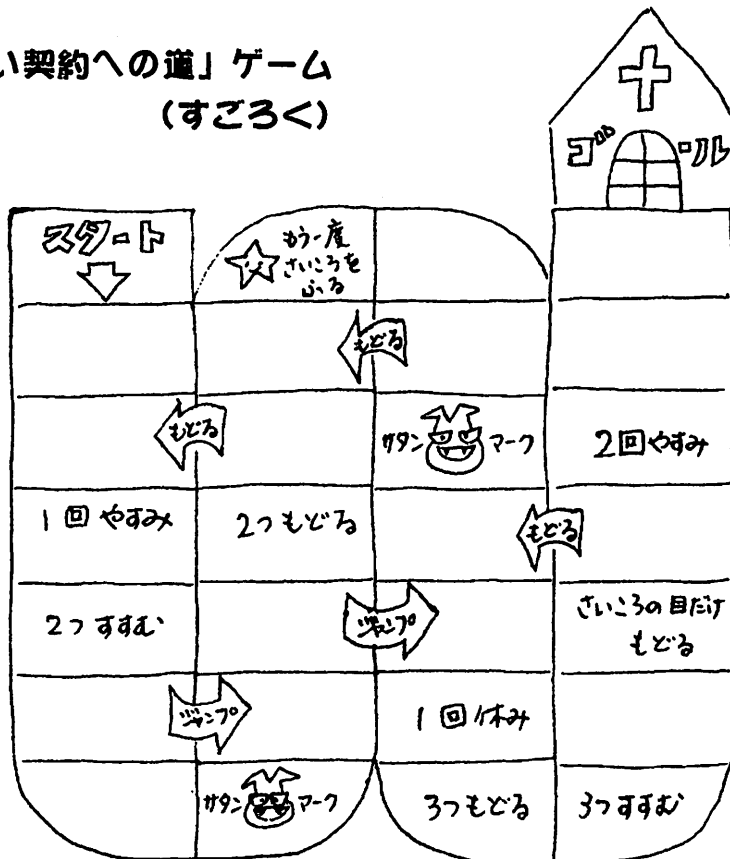 い契約への道」ゲーム
(すごろく)
ゴール
スタート
もう一度
さいころを
ふる
もどる
もどる
サタン マーク
2回やすみ
1回やすみ
2つもどる
もどる
2つすすむ
ジャンプ
さいころの目だけ
もどる
ジャンプ
1回休み
サタン マーク
3つもどる
3つすすむ